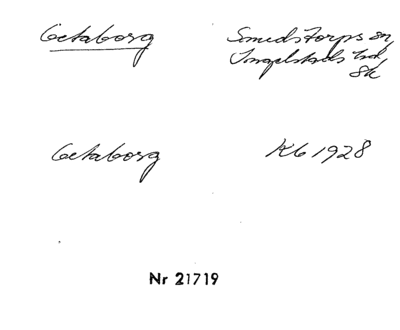 Getaborg
Smedstorps sn,
Ingelstads hd,
Sk
Getaborg
Kb 1928
Nr 21719